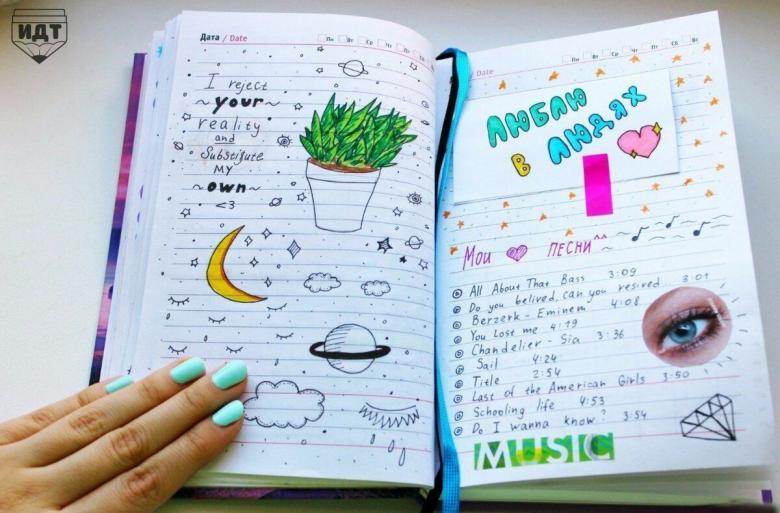 ИДТ
Дата / Date
Пн Вт Ср Чт Пт Сб Вс
I reject
~your~
reality
and
Substitute
MY
~own~
<3
Date
Пн Вт Ср Чт Пт Сб Вс
ЛЮБЛЮ
В ЛЮДЯХ
Мои ПЕСНИ^^
All About That Bass 3:09
Do you belived, can you resired 3:01
Berzerk - Eminem 4:08
You Lost me 4:19
Chandelier - Sia 3:36
Sail 4:24
Title 2:54
Last of the American Girls 3:50
Schooling life 4:53
Do I wanna know? 3:54
MUSIC